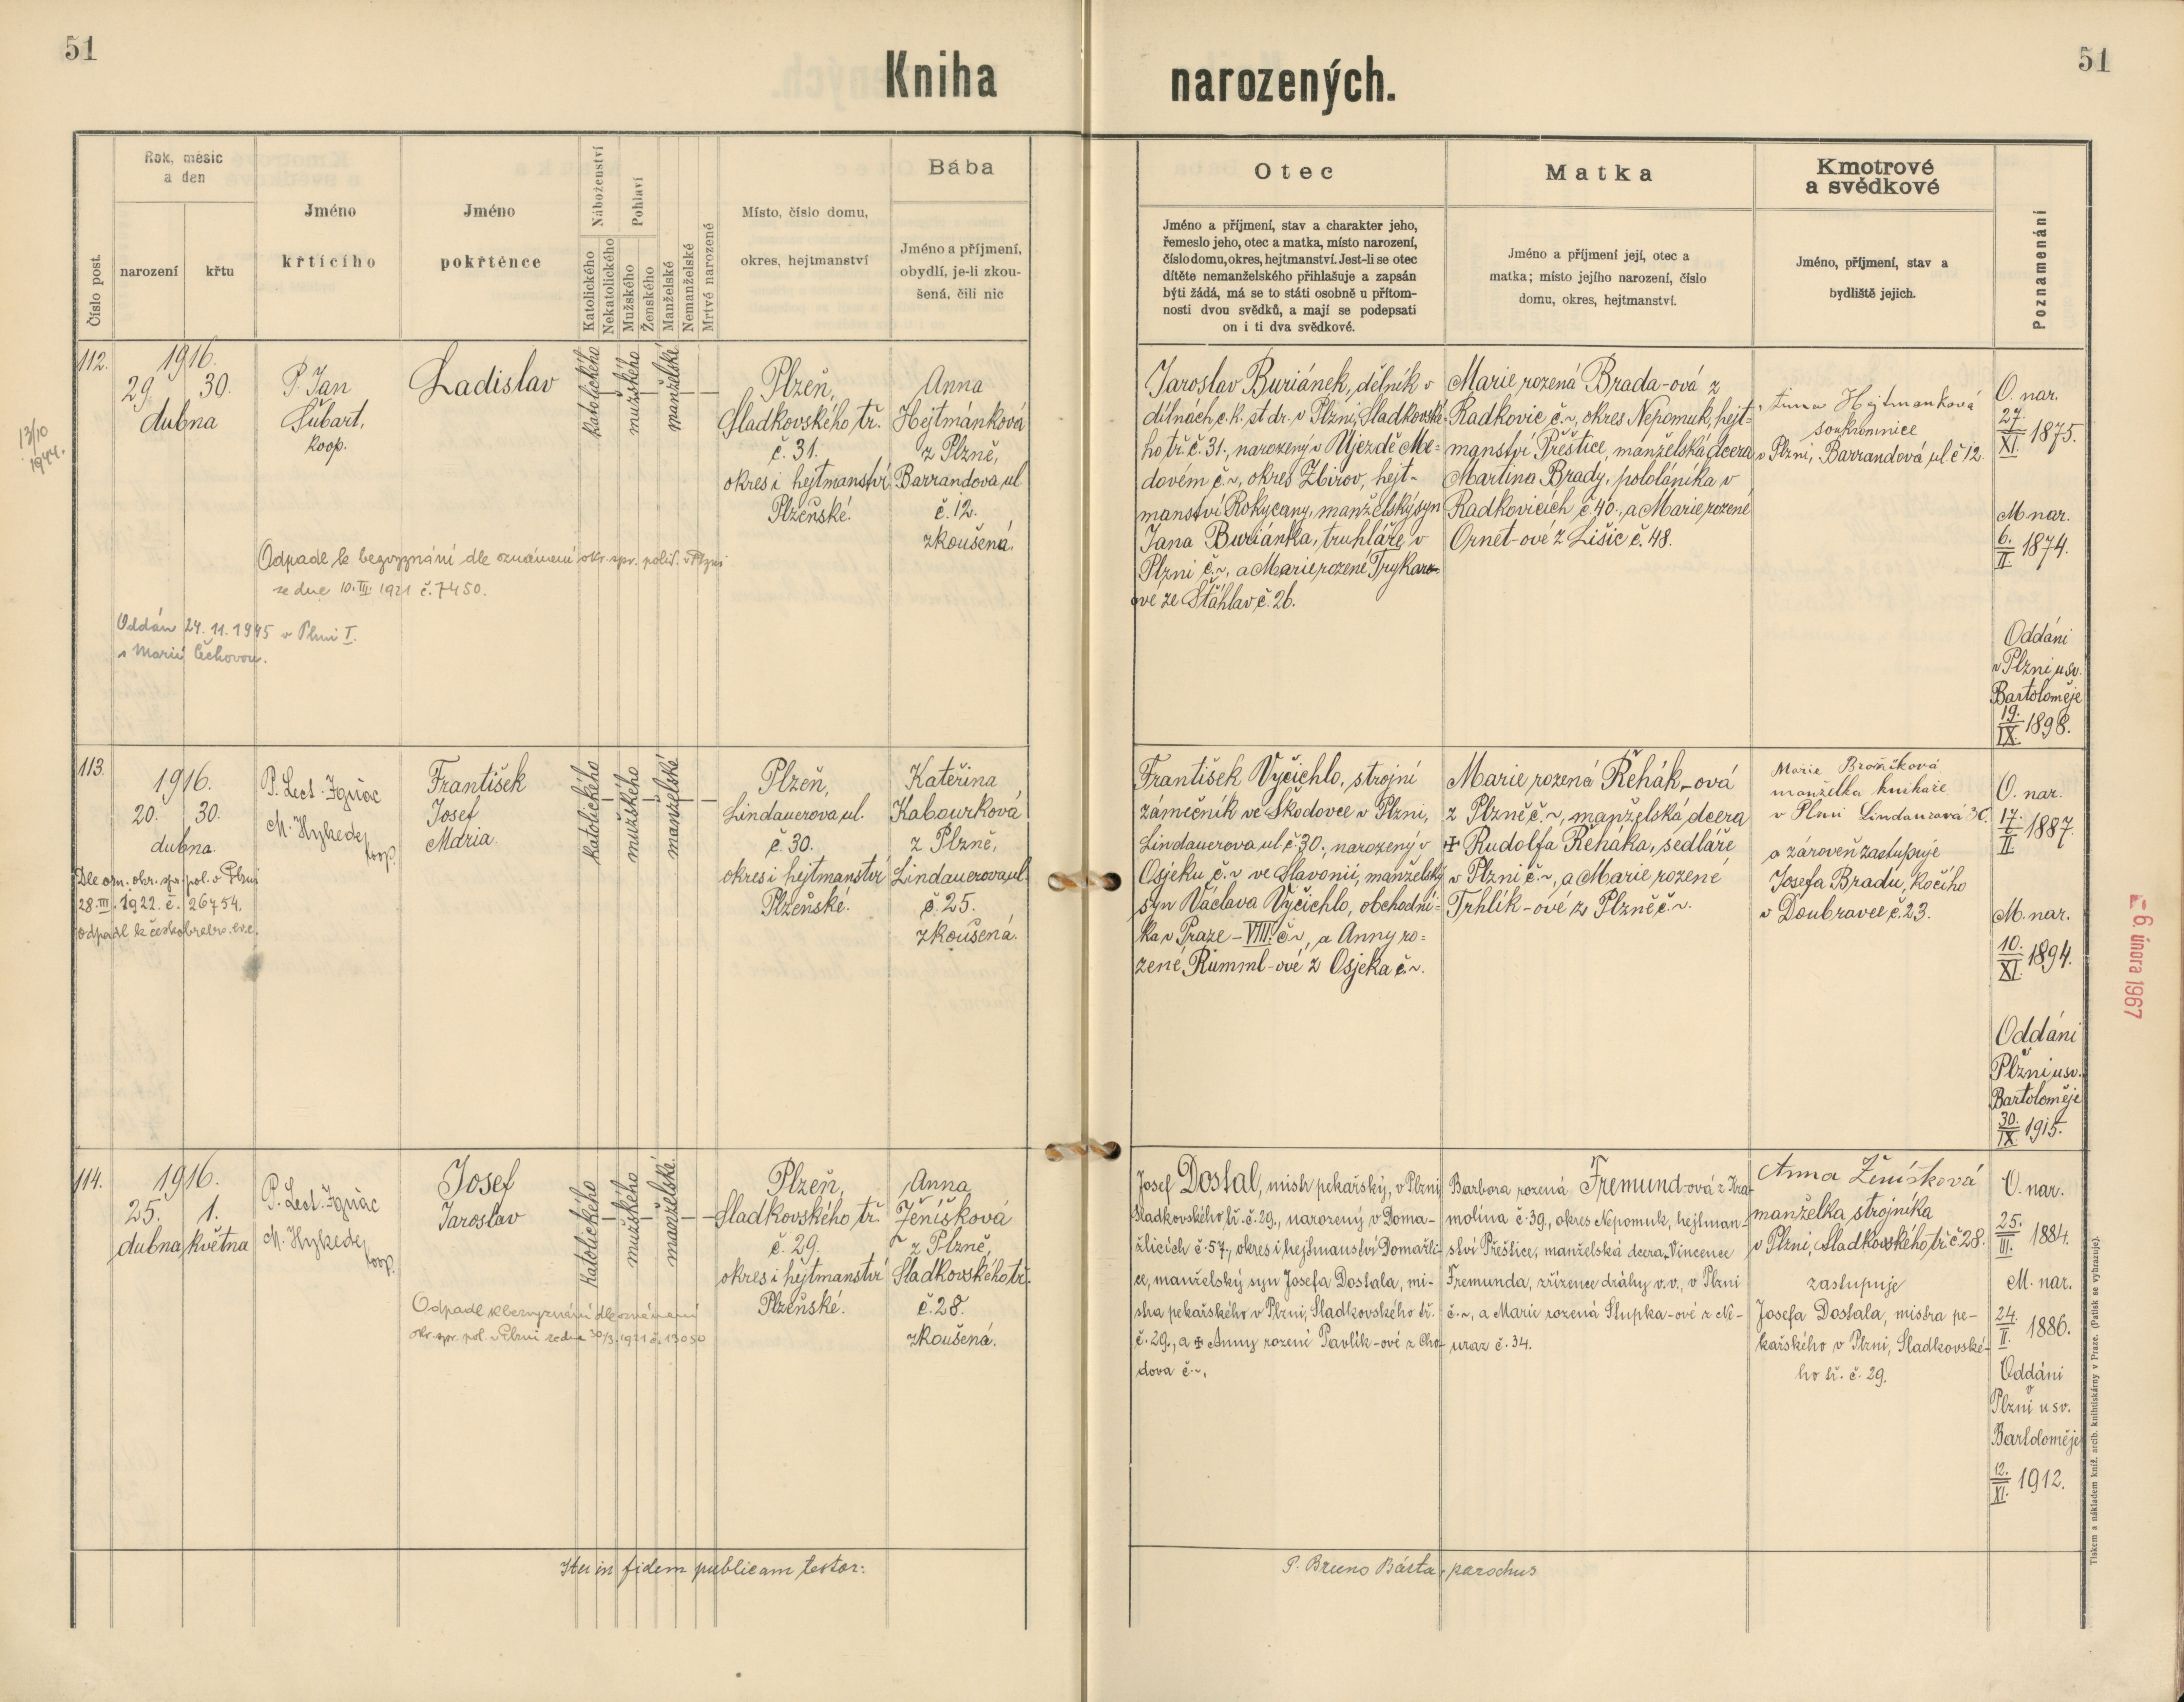 51
Kniha
narozených.
51
Číslo post.
Rok, měsíc
a den
narození
křtu
Jméno
křtícího
Jméno
pokřtěnce
Náboženství
Katolického
Nekatolického
Pohlaví
Mužského
Ženského
Manželské
Nemanželské
Mrtvě narozené
Místo, číslo domu,
okres, hejtmanství
Bába
Jméno a příjmení,
obydlí, je-li zkou-
šená, čili nic
Otec
Jméno a příjmení, stav a charakter jeho,
řemeslo jeho, otec a matka, místo narození,
číslo domu, okres, hejtmanství. Jest-li se otec
dítěte nemanželského přihlašuje a zapsán
býti žádá, má se to státi osobně u přítom-
nosti dvou svědků, a mají se podepsati
on i ti dva svědkové.
Matka
Jméno a příjmení její, otec a
matka; místo jejího narození, číslo
domu, okres, hejtmanství.
Kmotrové
a svědkové
Jméno, příjmení, stav a
bydliště jejich.
Poznamenání
13/10
1944.
112.
1916.
29. 30.
dubna
P. Jan
Šubart,
koop.
Ladislav
katolického
mužského
manželské
Plzeň,
Sladkovského tř.
č. 31.
okres i hejtmanství
Plzeňské.
Anna
Hejtmánková
z Plzně,
Barrandova ul.
č. 12.
zkoušená.
Odpadl k bezvyznání dle oznámení okr. spr. polit. v Plzni
ze dne 10. III. 1921 č. 7450.
Oddán 24. 11. 1945 v Plzni I.
s Marií Čechovou.
Jaroslav Buriánek, dělník v
dílnách c. k. st. dr. v Plzni, Sladkovské-
ho tř. č. 31., narozený v Újezdě Me-
dovém č. ~, okres Zbirov, hejt-
manství Rokycany, manželský syn
Jana Buriánka, truhláře v
Plzni č. ~, a Marie rozené Trykar-
ové ze Šťáhlav č. 26.
Marie rozená Brada-ová z
Radkovic č. ~, okres Nepomuk, hejt-
manství Přeštice, manželská dcera
Martina Brady, pololáníka v
Radkovicích č. 40., a Marie rozené
Ornet-ové z Lišic č. 48.
Anna Hejtmanková
soukromnice
v Plzni, Barrandová ul č 12.
O. nar.
27.
XI. 1875.
M. nar.
6.
II. 1874.
Oddáni
v Plzni u sv.
Bartoloměje
19.
IX. 1898.
113.
1916.
20. 30.
dubna
P. Lect. Ignác
M. Hykede
koop.
František
Josef
Maria
katolického
mužského
manželské
Plzeň,
Lindauerova ul.
č. 30.
okres i hejtmanství
Plzeňské.
Kateřina
Kabourková
z Plzně,
Lindauerova ul.
č. 25.
zkoušená.
Dle ozn. okr. spr. pol. v Plzni
28. III. 1922. č. 26754.
odpadl k českobratr. ev. c.
František Vyčichlo, strojní
zámečník ve Škodovce v Plzni,
Lindauerova ul. č. 30., narozený v
Osjeku č. ~ ve Slavonii, manželský
syn Václava Vyčichlo, obchodní-
ka v Praze - VIII. č ~, a Anny ro-
zené Rumml-ové z Osjeka č. ~.
Marie rozená Řehák-ová
z Plzně č. ~, manželská dcera
✠ Rudolfa Řeháka, sedláře
v Plzni č. ~, a Marie rozené
Trhlík-ové z Plzně č. ~.
Marie
manželka knihaře
v Plzni Lindaurová 30.
a zároveň zastupuje
Josefa Bradu, kočího
v Doubravce č. 23.
O. nar.
17.
II. 1887.
M. nar.
10.
XI. 1894.
Oddáni
v
Plzni u sv.
Bartoloměje
30.
IX. 1915.
- 6. února 1967
114.
1916.
25. 1.
dubna května
P. Lect. Ignác
M. Hykede
koop.
Josef
Jaroslav
katolického
mužského
manželské.
Plzeň,
Sladkovského tř.
č. 29.
okres i hejtmanství
Plzeňské.
Anna
Ženíšková
z Plzně,
Sladkovského tř.
č. 28.
zkoušená.
Odpadl k bezvyznání dle oznámení
okr. spr. pol. v Plzni ze dne 30/3. 1921 č. 13050
Josef Dostal, mistr pekařský, v Plzni
Sladkovského tř. č. 29., narozený v Doma-
žlicích č. 57., okres i hejtmanství Domažli-
ce, manželský syn Josefa Dostala, mi-
stra pekařského v Plzni, Sladkovského tř.
č. 29., a ✠ Anny rození Pavlík-ové z Cho-
dova č. ~.
Barbora rozená Fremund-ová z Kra-
molína č. 39., okres Nepomuk, hejtman-
ství Přeštice, manželská dcera Vincence
Fremunda, zřízence dráhy v. v., v Plzni
č. ~, a Marie rozená Stupka-ové z Ne-
uraz č. 34.
Anna Ženíšková
manželka strojníka
v Plzni, Sladkovského tř. č 28.
zastupuje
Josefa Dostala, mistra pe-
kařského v Plzni, Sladkovské-
ho tř. č. 29.
O. nar.
25.
III. 1884.
M. nar.
24.
II. 1886.
Oddáni
v
Plzni u sv.
Bartoloměje
12.
XI. 1912.
Ita in fidem publicam testor:
P. Bruno Bárta, parochus
Tiskem a nákladem kníž. arcib. knihtiskárny v Praze. (Patisk se vyhrazuje).